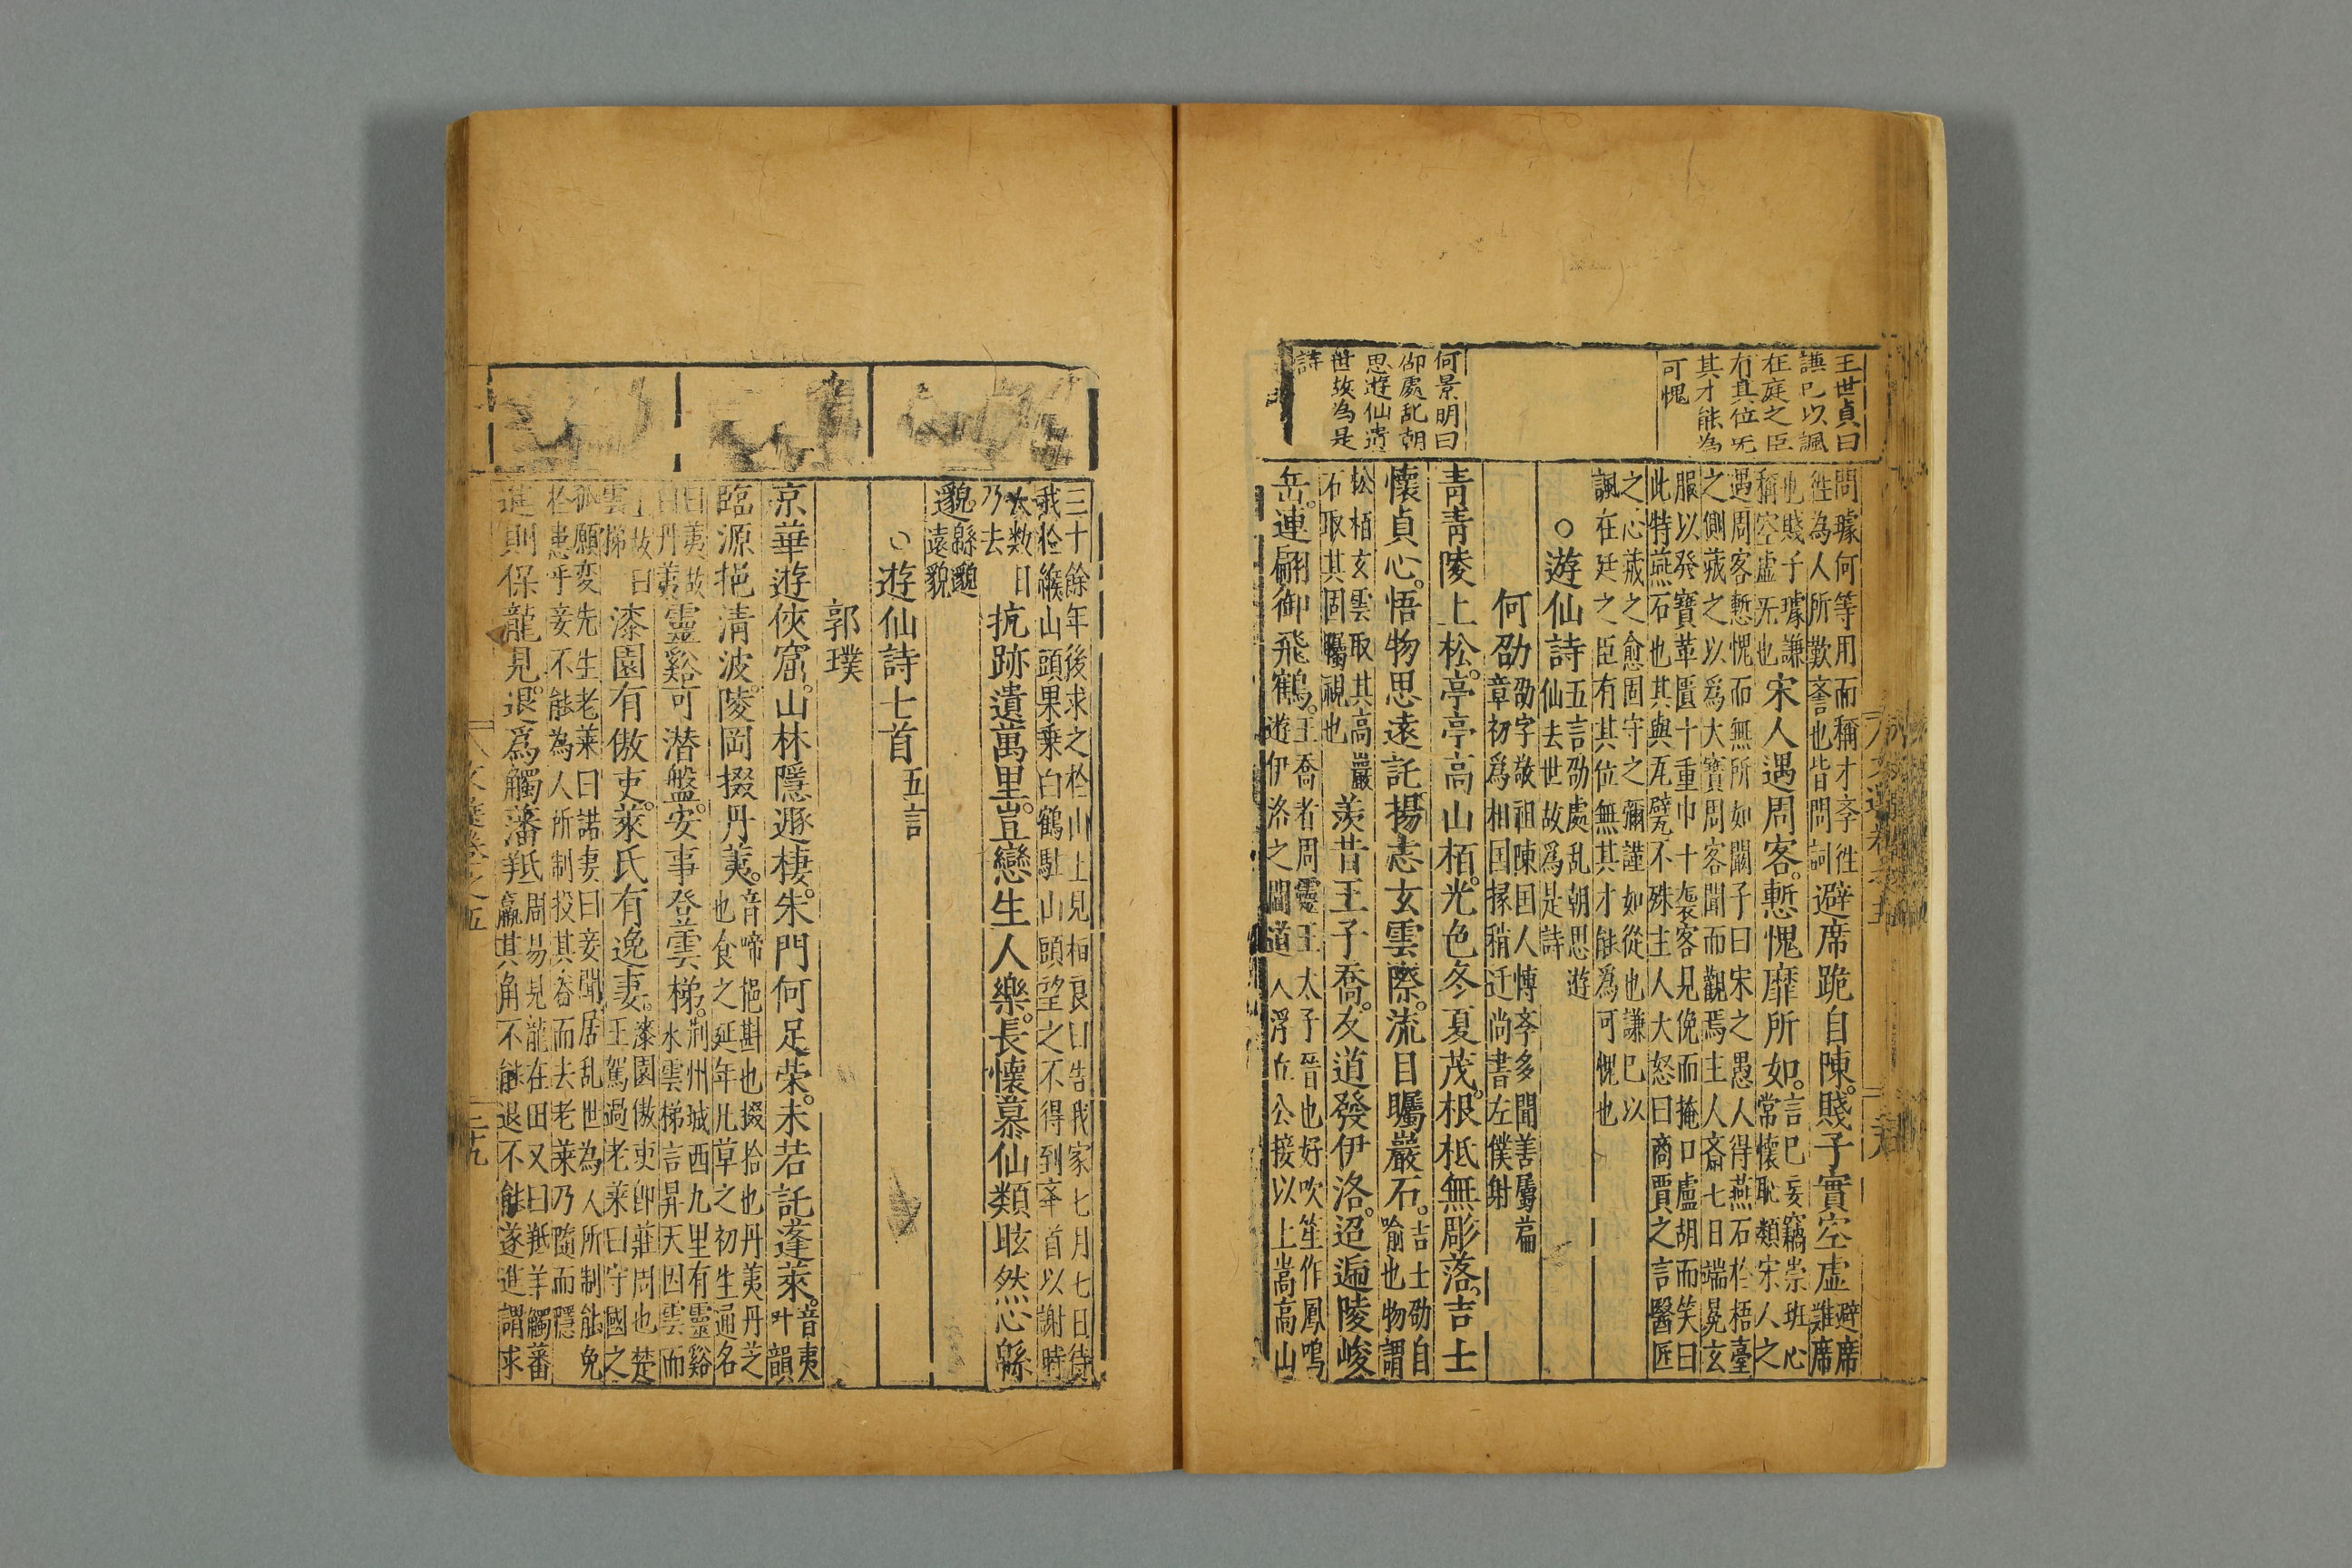 王世貞曰
謙已以諷
在庭之臣
有其位无
其才能為
可愧
何景明曰
卲處乱朝
思遊仙遺
世故為是
詩
問璩何等用而稱才孝徃
徃為人所歎美言也皆問詞
避席跪自陳。賤子實空虛
避席
離席
也賤子璩謙
稱空虛无也
宋人遇周客。慙愧靡所如。
言已妄竊崇班心
常懷恥類宋人之
遇周客慙愧而無所如闞子曰宋之愚人得燕石於梧臺
之側藏之以爲大寶周客聞而觀焉主人齋七日端冕玄
服以發寶革匱十重巾十襲客見俛而掩口盧胡而笑曰
此特燕石也其與瓦甓不殊主人大怒曰商賈之言醫匠
之心藏之愈固守之彌謹如從也謙已以
諷在廷之臣有其位無其才能爲可愧也
○遊仙詩
五言劭處乱朝思遊
仙去世故爲是詩
何劭
劭字敬祖陳国人博孝多聞善屬篇
章初爲相国掾稍迁尚書左僕射
青青陵上松。亭亭高山栢。光色冬夏茂。根柢無彫落。吉士
懷貞心。悟物思遠託。揚志玄雲際。流目矚巖石。
吉士劭自
喻也物謂
松栢玄雲取其高巖
石取其固矚視也
羨昔王子喬。友道發伊洛。迢遞陵峻
岳。連翩御飛鶴。
王喬者周靈王太子晉也好吹笙作鳳鳴
遊伊洛之間道人浮丘公接以上嵩高山
三十餘年後求之於山上見栢良曰告我家七月七日待
我於緱山頭果乗白鶴駐山頭望之不得到举首以謝時
人数日
乃去
抗跡遺萬里。豈戀生人樂。長懷慕仙類眩然心緜
邈。
緜邈
遠貌
○遊仙詩七首
五言
郭璞
京華遊俠窟。山林隱遯棲。朱門何足荣。未若託蓬萊。
音夷
叶韻
臨源挹清波。陵岡掇丹荑。
音啼挹斟也掇拾也丹荑丹芝
也食之延年凡草之初生通名
曰荑故
曰丹荑
靈谿可潜盤。安事登雲梯。
荆州城西九里有靈谿
水雲梯言昇天因雲而
上故曰
雲梯
漆園有傲吏。萊氏有逸妻。
漆園傲吏即莊周也楚
王駕過老莱曰守國之
孤願変先生老莱曰諾妻曰妾聞居乱世為人所制能免
於患乎妾不能為人所制投其畚而去老莱乃隨而隱
進則保龍見。退爲觸藩羝。
周易見龍在田又曰羝羊觸蕃
羸其角不能退不能遂進謂求
文選卷之五
三九